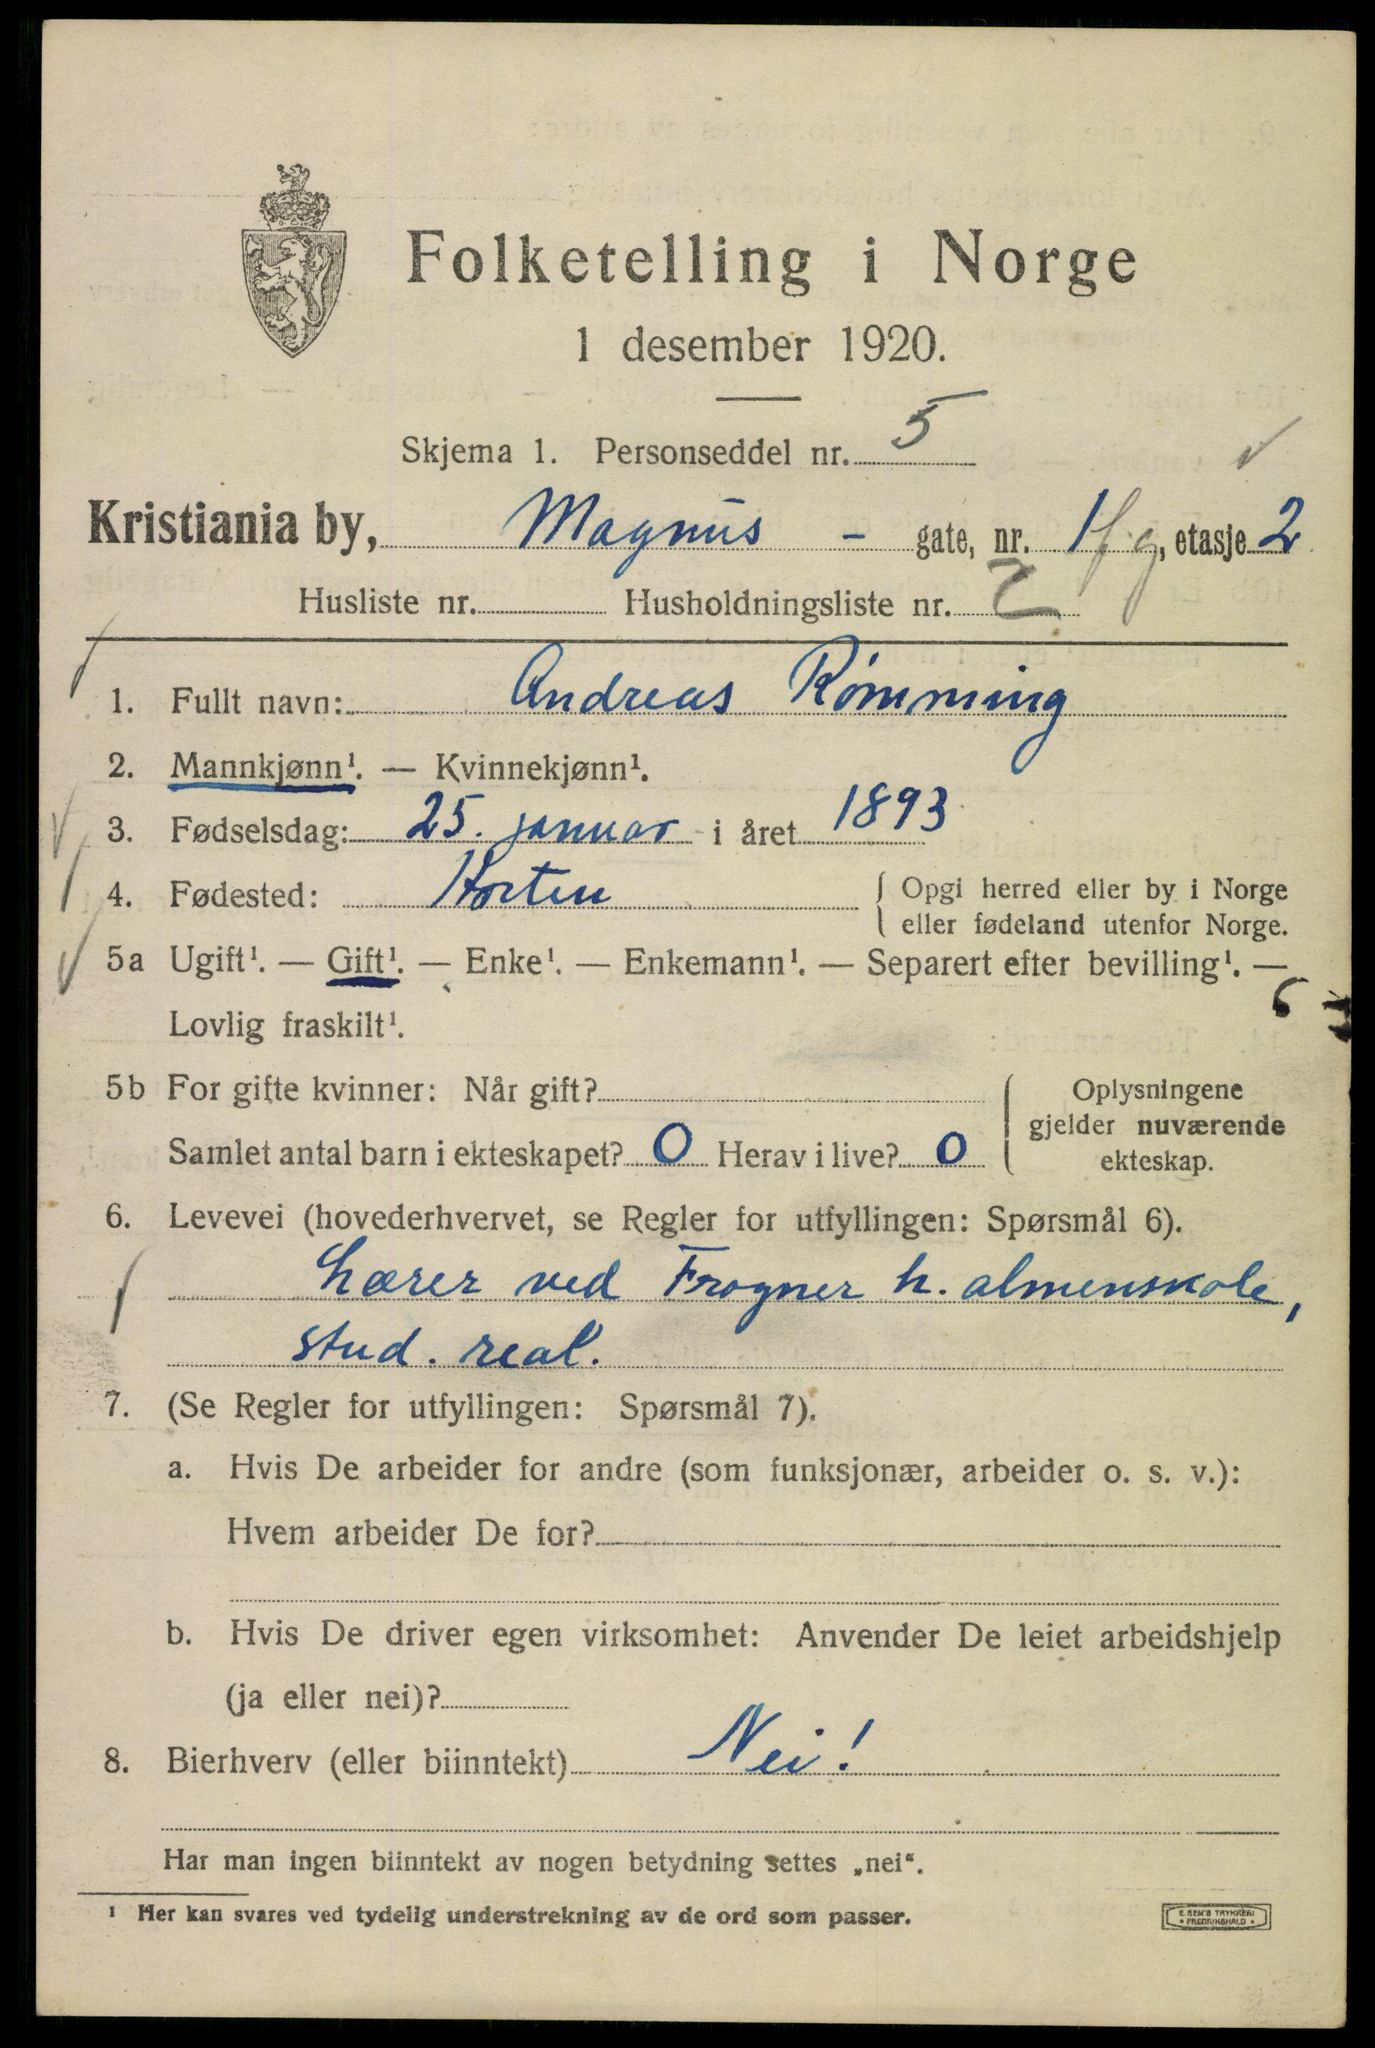 Folketelling i Norge
1 desember 1920.
Skjema 1. Personseddel nr. 5
Kristiania by, Magnus - gate, nr. 1 fg, etasje 2
Husliste nr. Husholdningsliste nr. 2
1. Fullt navn: Andreas Rømming
2. Mannkjønn¹. — Kvinnekjønn¹.
3. Fødselsdag: 25. januar i året 1893
4. Fødested: Horten { Opgi herred eller by i Norge
eller fødeland utenfor Norge.
5a Ugift¹. — Gift¹. — Enke¹. — Enkemann¹. — Separert efter bevilling¹. —
Lovlig fraskilt¹.
5b For gifte kvinner: Når gift?
Samlet antal barn i ekteskapet? 0 Herav i live? 0
Oplysningene
gjelder nuværende
ekteskap.
6. Levevei (hovederhvervet, se Regler for utfyllingen: Spørsmål 6).
Lærer ved Frogner h. almenskole,
stud. real.
7. (Se Regler for utfyllingen: Spørsmål 7).
a. Hvis De arbeider for andre (som funksjonær, arbeider o. s. v.):
Hvem arbeider De for?
b. Hvis De driver egen virksomhet: Anvender De leiet arbeidshjelp
(ja eller nei)?
8. Bierhverv (eller biinntekt) Nei!
Har man ingen biinntekt av nogen betydning settes „nei“.
¹ Her kan svares ved tydelig understrekning av de ord som passer.
E. SEM'S TRYKKERI
• FREDRIKSHALD •